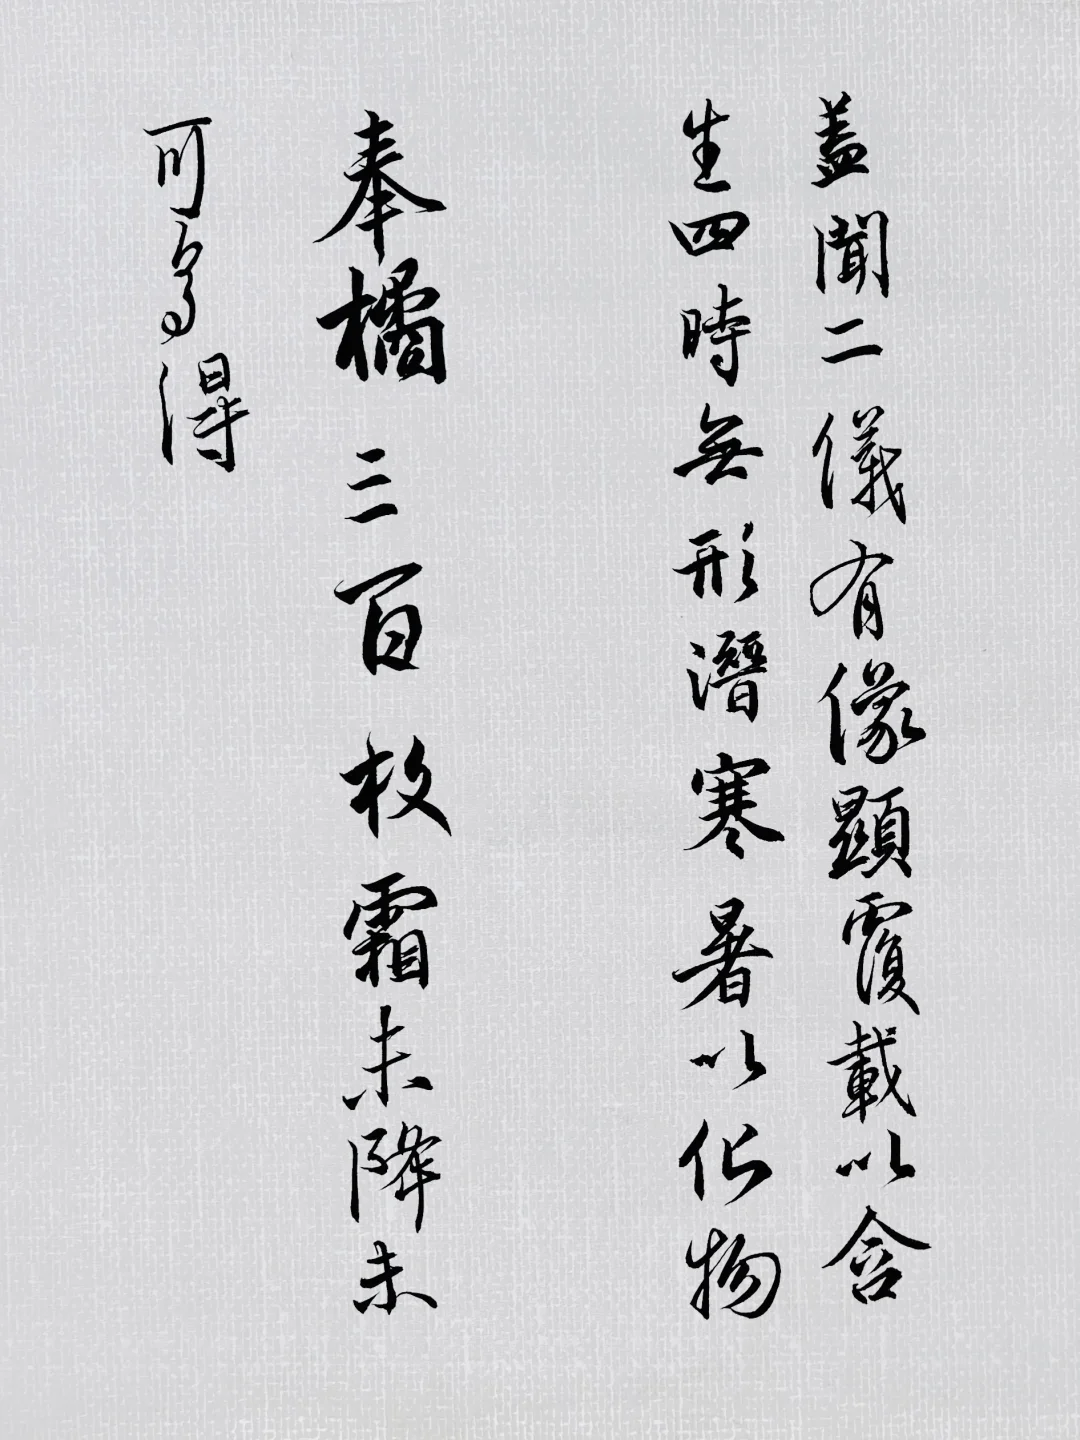 蓋聞二儀有像顯覆載以含
生四時無形潛寒暑以化物
奉橘三百枚霜未降未
可多得